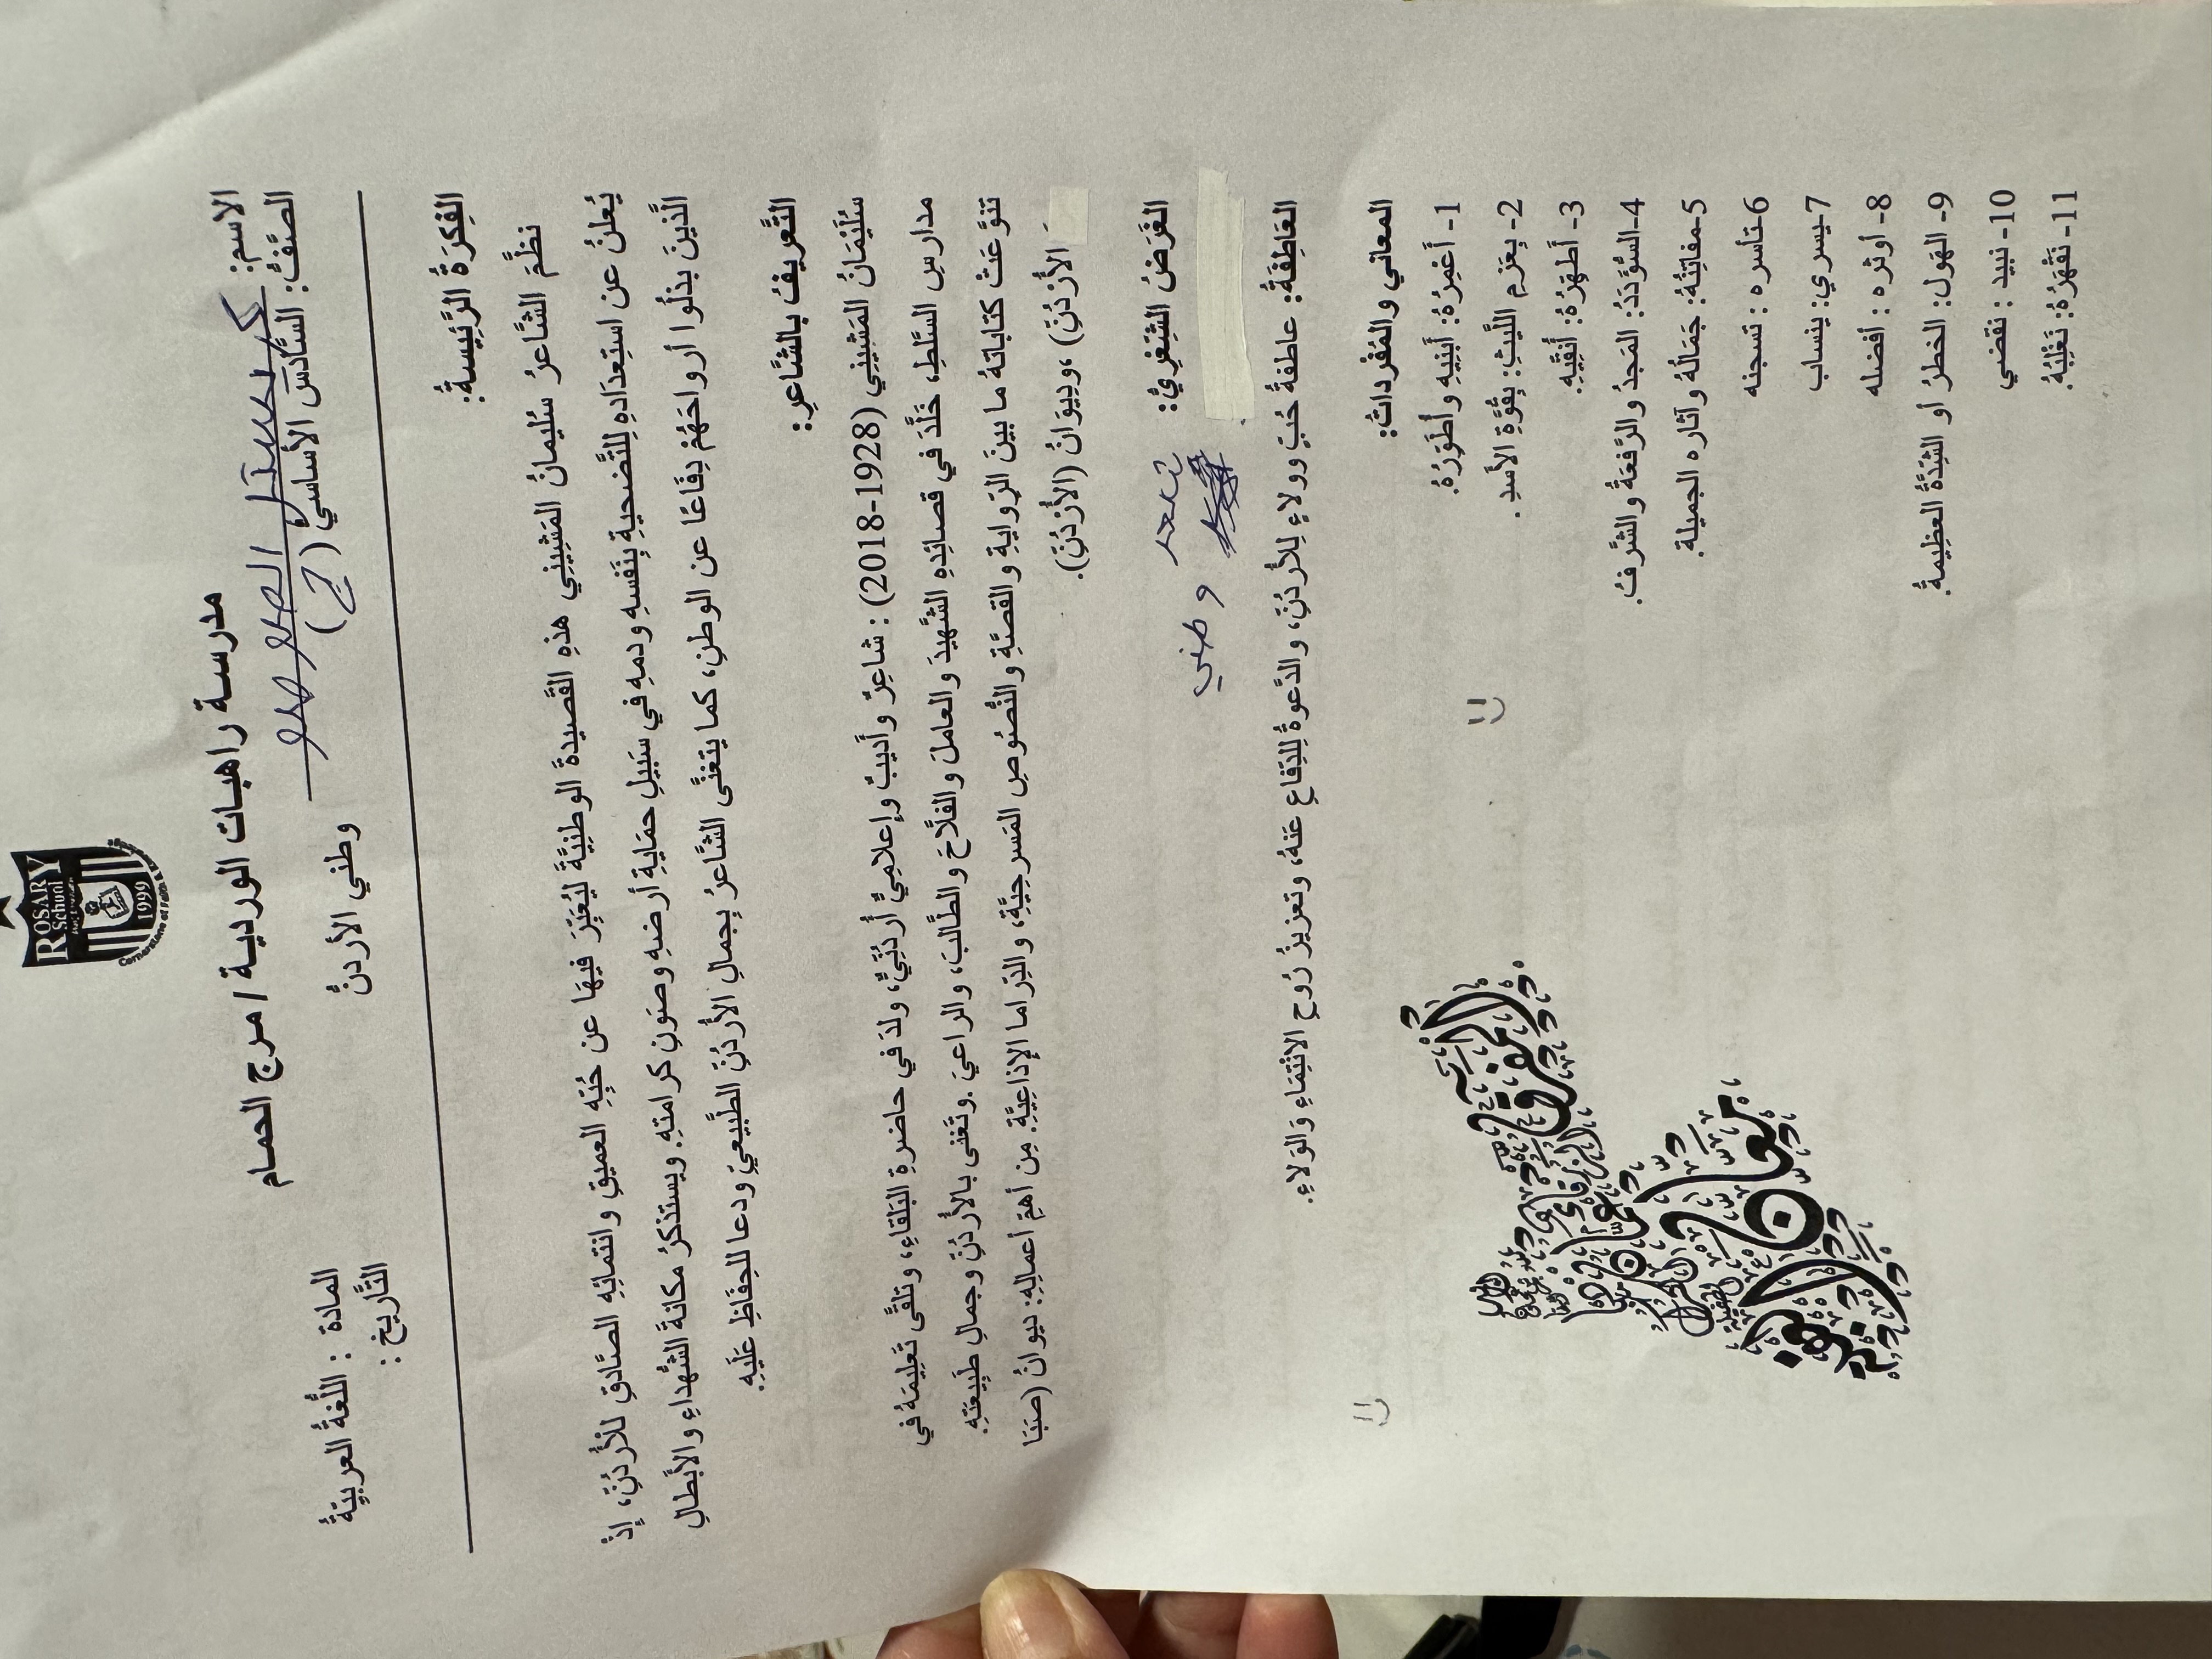 ROSARY
School
1999
مدرسة راهبات الوردية / مرج الحمام
الاسم:
المادة : اللُّغةُ العربيّةُ
الصَّفُّ: السَّادسَ الأساسي ( ج )
وطني الأردنُّ
التَّاريخ :
الفِكرَةُ الرَّئِيسةُ:
نظَّمَ الشَّاعرُ سُليمانُ المَشِّيني هذهِ القَّصيدةَ الوطنيَّةَ ليُعَبِّرَ فيهَا عن حُبِّهِ العميقِ وانتمائِهِ الصَّادقِ للأُردُنِّ، إذْ
يُعلنُ عن استِعدَادِهِ للتَّضحيةِ بِنَفسِهِ ودمهِ في سَبيلِ حمَايةِ أرضهِ وصَونِ كرامتهِ. ويستذكرُ مكانةَ الشُّهداءِ والأبَطالِ
الَّذينَ بذلُوا أرواحَهُمْ دِفَاعًا عن الوطنِ، كما يتغنَّى الشَّاعرُ بِجمالِ الأُردُنِّ الطَّبيعيِّ ودعا للحِفَاظِ عَلَيهِ.
التَّعريفُ بالشَّاعرِ:
سُلَيْمَانُ المَشِّيْنِي (1928-2018) : شاعِرٌ وأَديبٌ وإعلامِيٌّ أُردُنِّيٌّ، ولدَ في حاضرةِ البَلقَاءِ، وتلقَّى تَعلِيمَهُ في
مدارسِ السَّلطِ، خَلَّدَ في قصائدِهِ الشَّهِيدَ والعاملَ والفلَّاحَ والطَّالبَ، والراعيَ .وتَغنى بالأُردُنِّ وجمالِ طَبِيعَتِهِ.
تنوَّعَتْ كتاباتهُ ما بينَ الرِّوايةِ والقصَّةِ والنُّصُوصِ المَسرحِيَّةِ، والدِّراما الإذاعِيَّةِ. مِن أهمِّ أعمالِهِ: ديوانُ (صَبَا
الأُرْدُنِّ) ،وديوَانُ (الأُرْدُنِّ).
الغَرَضُ الشِّعْرِيُّ:
شعر وطني
العَاطِفَةُ: عاطفةُ حُبٍّ وولاءٍ لِلأُردُنِّ، والدَّعوةُ لِلدِّفاعِ عَنهُ، وتعزيزُ رُوحِ الانْتِمَاءِ وَالوَلاءِ.
المعاني والمُفرداتُ:
1- أَعْمِرُهُ: أبنِيهِ وأطوِّرُهُ.
2- بِعَزمِ اللَّيثِ: بِقُوَّةِ الأسدِ.
3- أُطَهِّرُهُ: أُنقِّيِهِ.
4-السُّؤدَدُ: المَجدُ والرَّفعَةُ والشَّرفُ.
5-مفاتِنُهُ: جَمَالُهُ وآثاره الجميلة.
6-تأسره : تسجنه
7-يسري: ينساب
8- أوثره : أفضله
9- الهَول: الخطرُ أو الشِّدَّةُ العظيمةُ.
10- نبيد : نقضي
11- نَقْهَرُهُ: نَغْلِبُهُ.
المفرق
الزرقاء
عمان
الكرك
الطفيلة
معان
العقبة